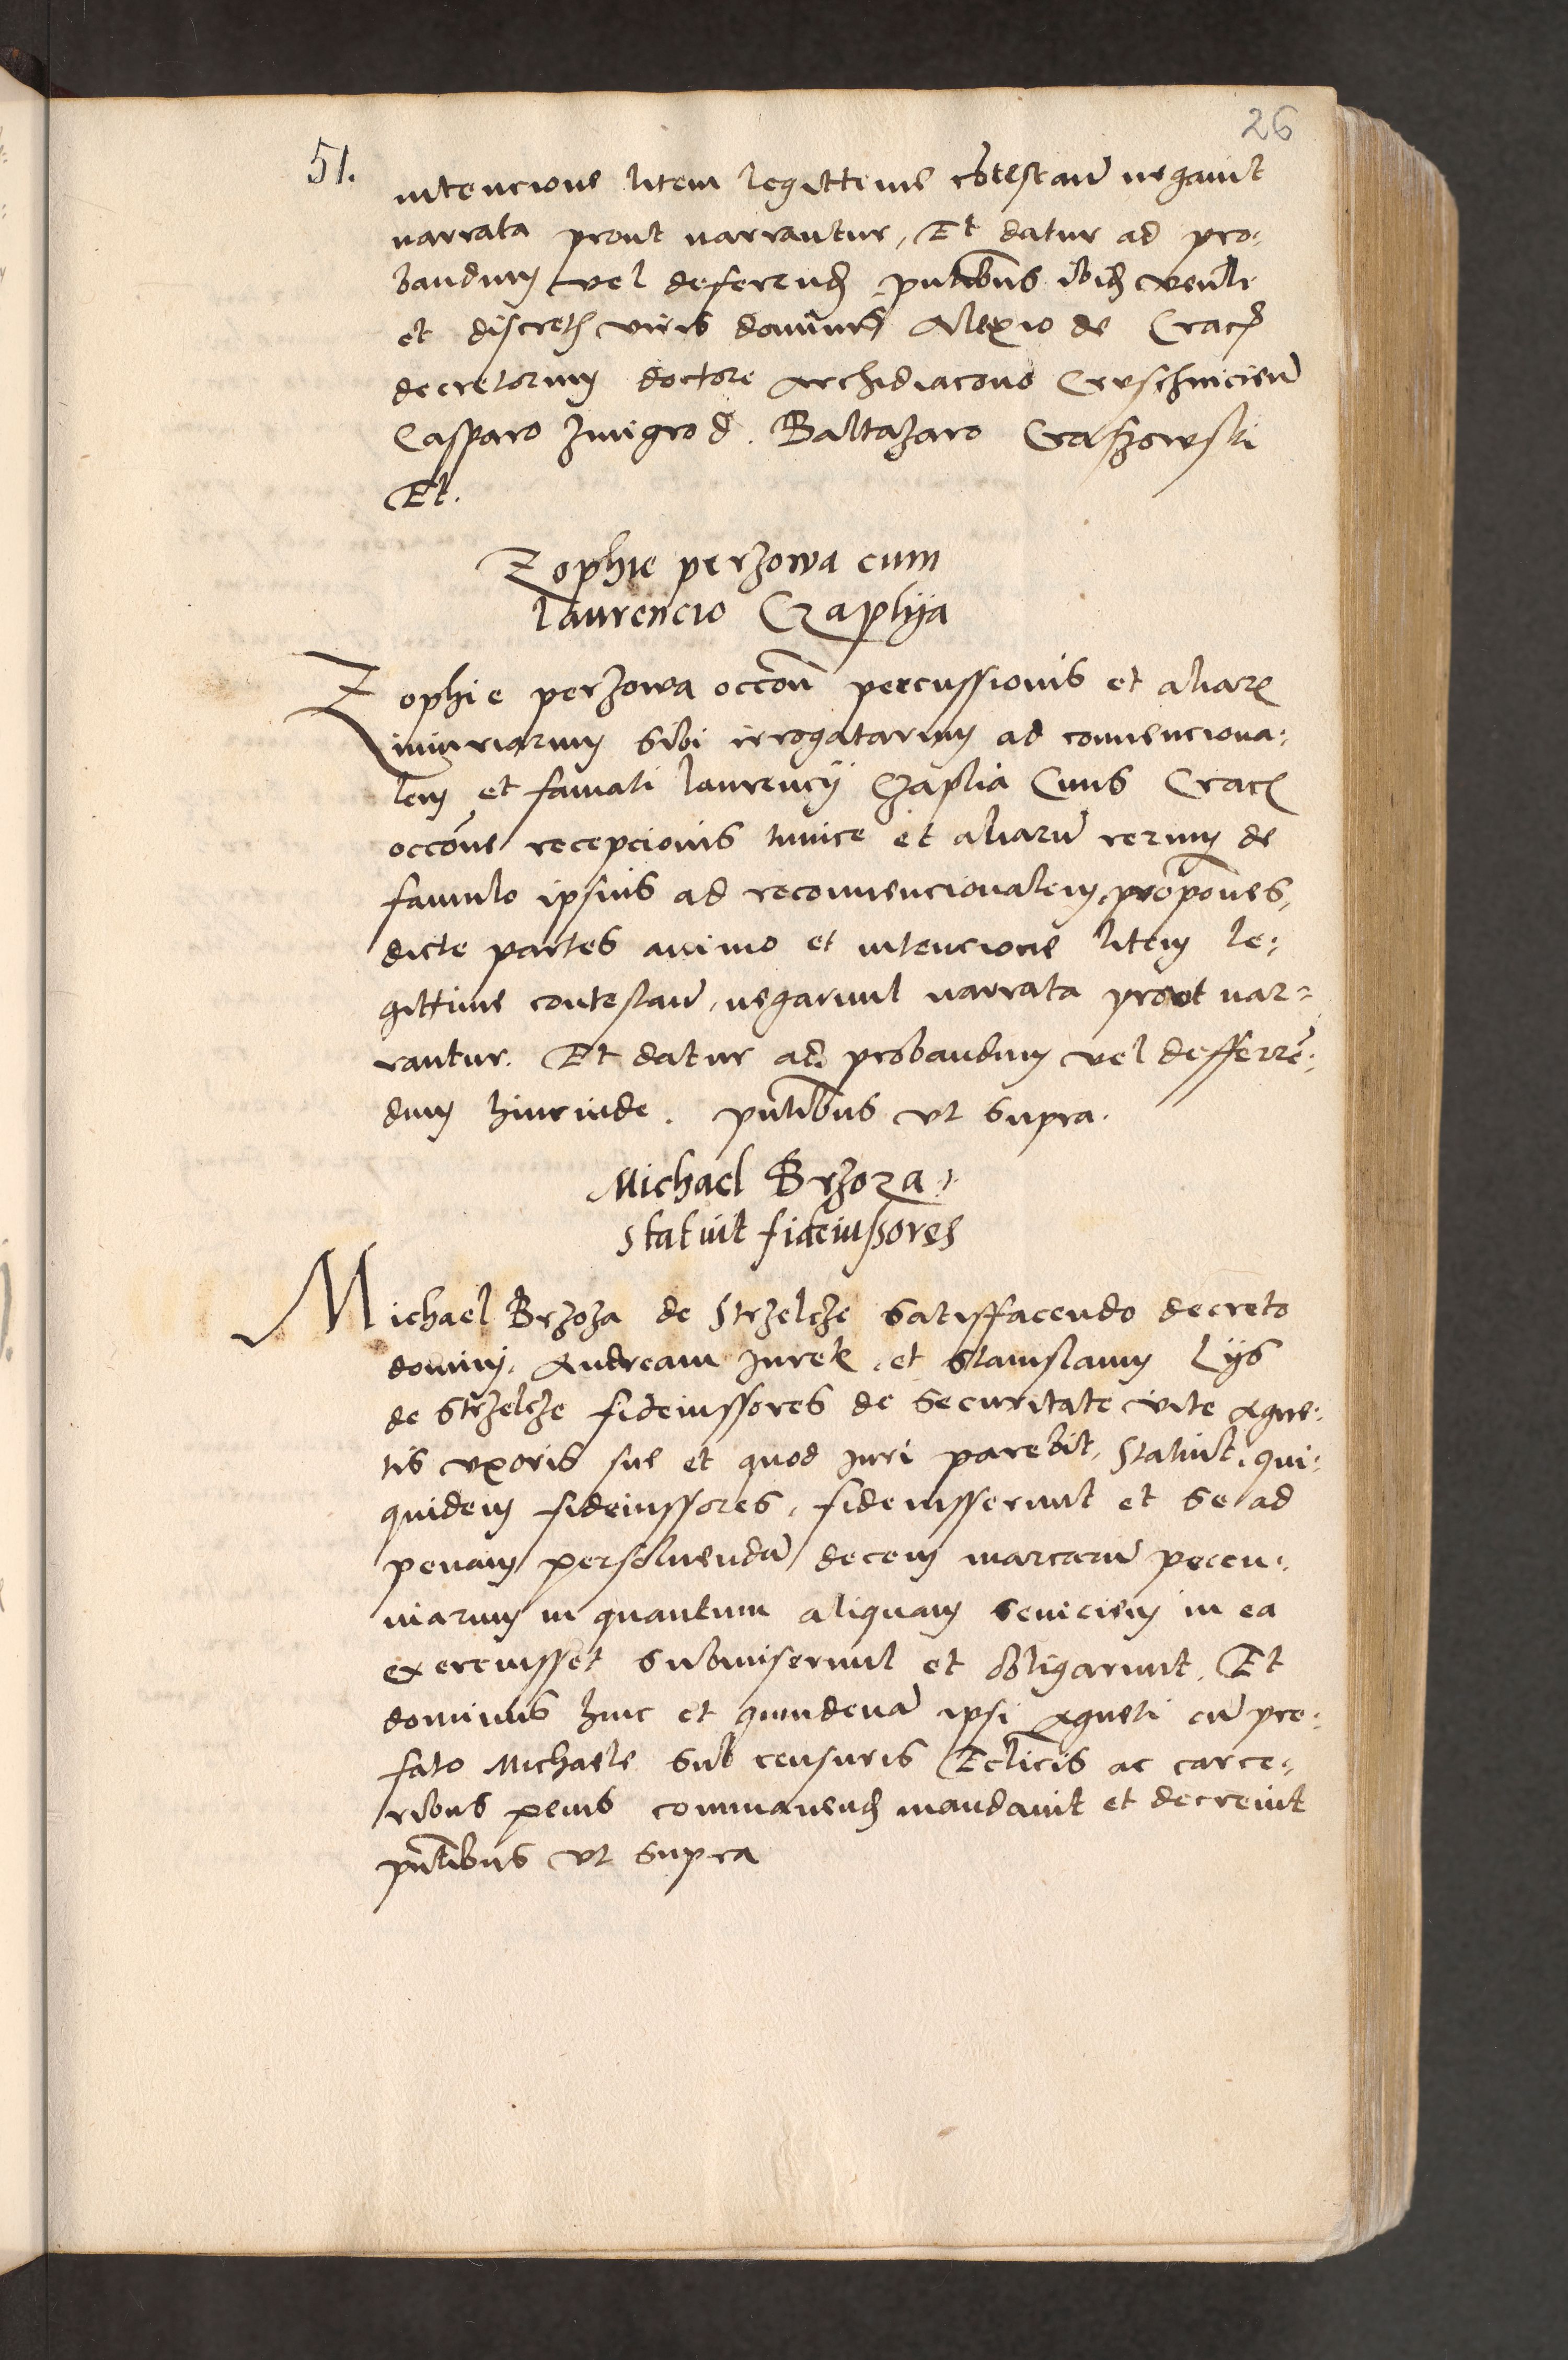 26
51.
intencione litem legittime cotestan negavit
narrata prout narrantur, Et datur ad pro:
bandum vel deferend pntibus ibid venli
et discret viris dominis Alexio de Crac
decretorum doctore Archidiacono Cruschwicien
Casparo Zmigrod. Baltazaro Graszowski
Et.
Zophie perzowa cum
laurencio Czapliia
Zophie perzowa occon percussionis et aliar
iniuriarum sibi irrogatarum ad convenciona:
lem et famati laurencij Czaplia Civis Crac
occone recepcionis tunice et aliarum rerum de
famulo ipsius ad reconvencionalem propones,
dicte partes animo et intencione litem le:
gittime contestan, negarunt narrata prout nar=
rantur. Et datur ad probandum vel defferre:
dum hincinde. pntibus vt supra.
Michael Brzoza
statuit fideiussores
Michael Brzoza de Strzelcze satisffacendo decreto
domini, Andream Jurek, et Stanislaum Lijs
de Strzelcze fideiussores de securitate vite Agne:
tis vxoris sue et quod Juri parebit, Statuit, qui:
quidem fideiussores, fideiusserunt et se ad
penam persolvendam decem marcarum peccu:
niarum in quantum aliquam seviciem in ea
exercuisset submiserunt et obligarunt. Et
dominus hinc et quindenam ipsi Agneti cum pre:
fato Michaele sub censuris Ecclicis ac carce:
ribus penis commanend mandavit et decrevit
pntibus vt supra